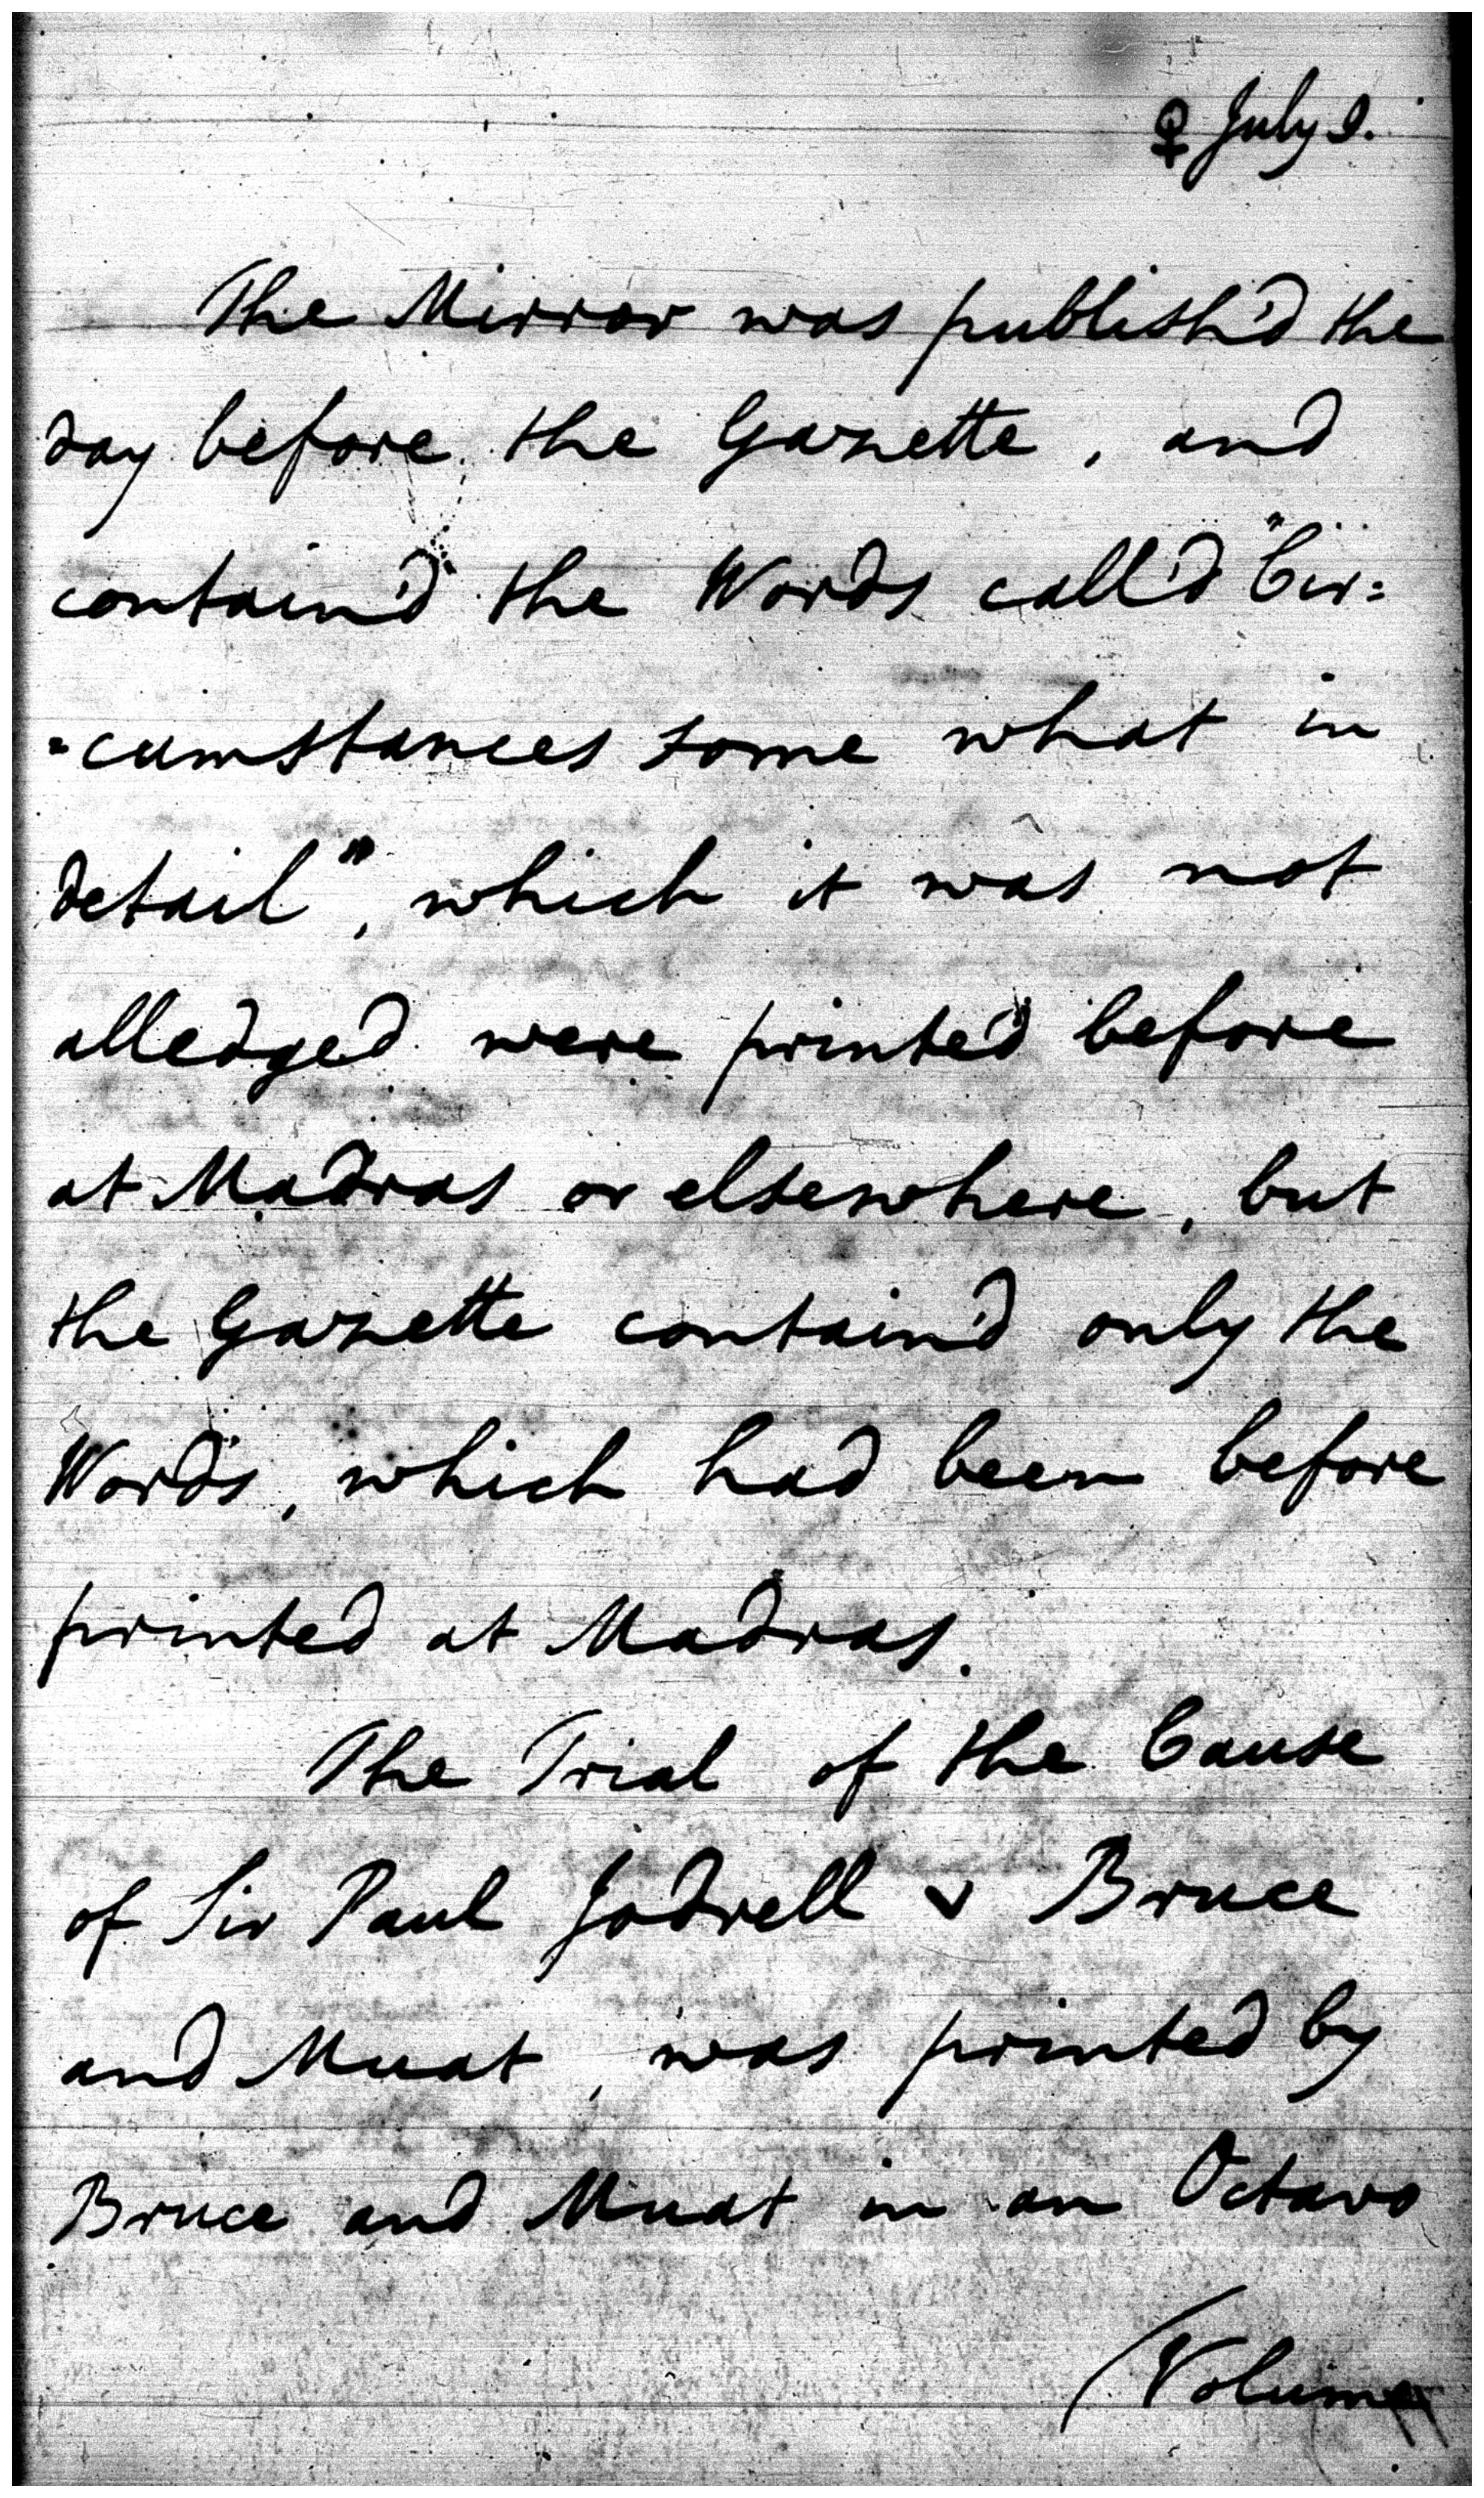 ♀ July 9.
The Mirror was publish'd the
day before the Gazette, and
contain'd the Words call'd "Cir=
=cumstances some what in
detail", which it was not
alledged were printed before
at Madras or elsewhere, but
the Gazette contain'd only the
Words, which had been before
printed at Madras.
The Trial of the Cause
of Sir Paul Jodrell v Bruce
and Muat, was printed by
Bruce and Muat in an Octavo
(Volume